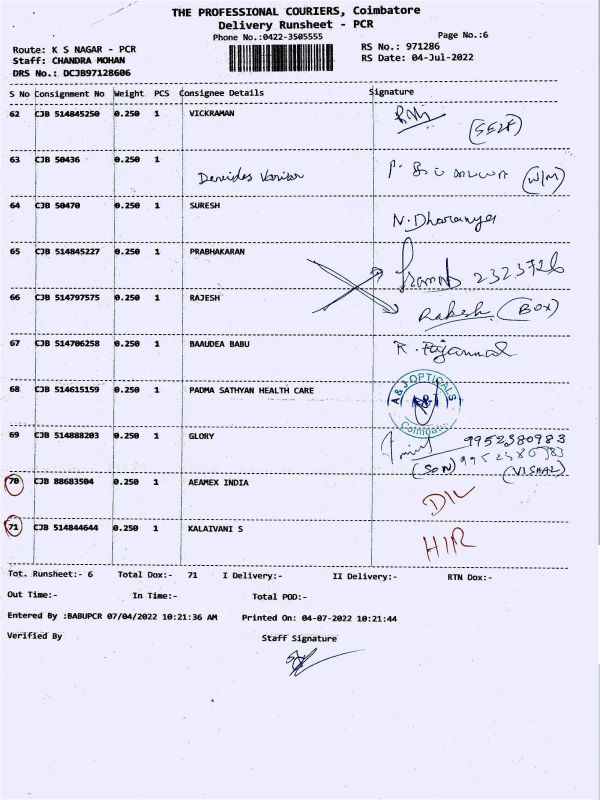 THE PROFESSIONAL COURIERS, Coimbatore
Delivery Runsheet - PCR
Phone No.:0422-3505555
Page No.:6
Route: K S NAGAR - PCR
RS No.: 971286
Staff: CHANDRA MOHAN
RS Date: 04-Jul-2022
DRS No.: DCJB97128606
S No Consignment No Weight PCS Consignee Details Signature
62 CJB 514845250 0.250 1 VICKRAMAN (SELF)
63 CJB 50436 0.250 1 (W/M)
64 CJB 50470 0.250 1 SURESH N. Dharanya
65 CJB 514845227 0.250 1 PRABHAKARAN 2323726
66 CJB 514797575 0.250 1 RAJESH Rakesh (BOX)
67 CJB 514706258 0.250 1 BAAUDEA BABU R.
68 CJB 514615159 0.250 1 PADMA SATHYAN HEALTH CARE A & J OPTICALS Coimbatore
69 CJB 514888203 0.250 1 GLORY 9952380983
(SON) 9952380983
(VISHAL)
70 CJB 88683504 0.250 1 AEAMEX INDIA D/L
71 CJB 514844644 0.250 1 KALAIVANI S HIR
Tot. Runsheet:- 6 Total Dox:- 71 I Delivery:- II Delivery:- RTN Dox:-
Out Time:- In Time:- Total POD:-
Entered By :BABUPCR 07/04/2022 10:21:36 AM Printed On: 04-07-2022 10:21:44
Verified By Staff Signature